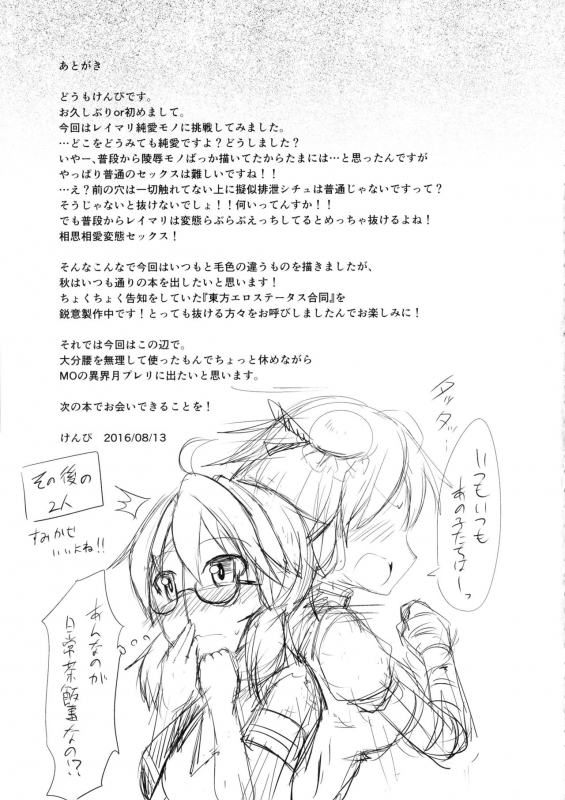 あとがき
どうもけんぴです。
お久しぶりor初めまして。
今回はレイマリ純愛モノに挑戦してみました。
…どこをどうみても純愛ですよ？どうしました？
いやー、普段から陵辱モノばっか描いてたからたまには…と思ったんですが
やっぱり普通のセックスは難しいですね！！
…え？前の穴は一切触れてない上に擬似排泄シチュは普通じゃないですって？
そうじゃないと抜けないでしょ！！何いってんすか！！
でも普段からレイマリは変態らぶらぶえっちしてるとめっちゃ抜けるよね！
相思相愛変態セックス！
そんなこんなで今回はいつもと毛色の違うものを描きましたが、
秋はいつも通りの本を出したいと思います！
ちょくちょく告知をしていた『東方エロステータス合同』を
鋭意製作中です！とっても抜ける方々をお呼びしましたんでお楽しみに！
それでは今回はこの辺で。
大分腰を無理して使ったもんでちょっと休めながら
MOの異界月ブレリに出たいと思います。
次の本でお会いできることを！
けんぴ　2016/08/13
タッタッ…
いつもいつも
あの子たちはーっ
その後の
2人
すみかせ
いいよね!!
あんなのが
日常茶飯事なの!?